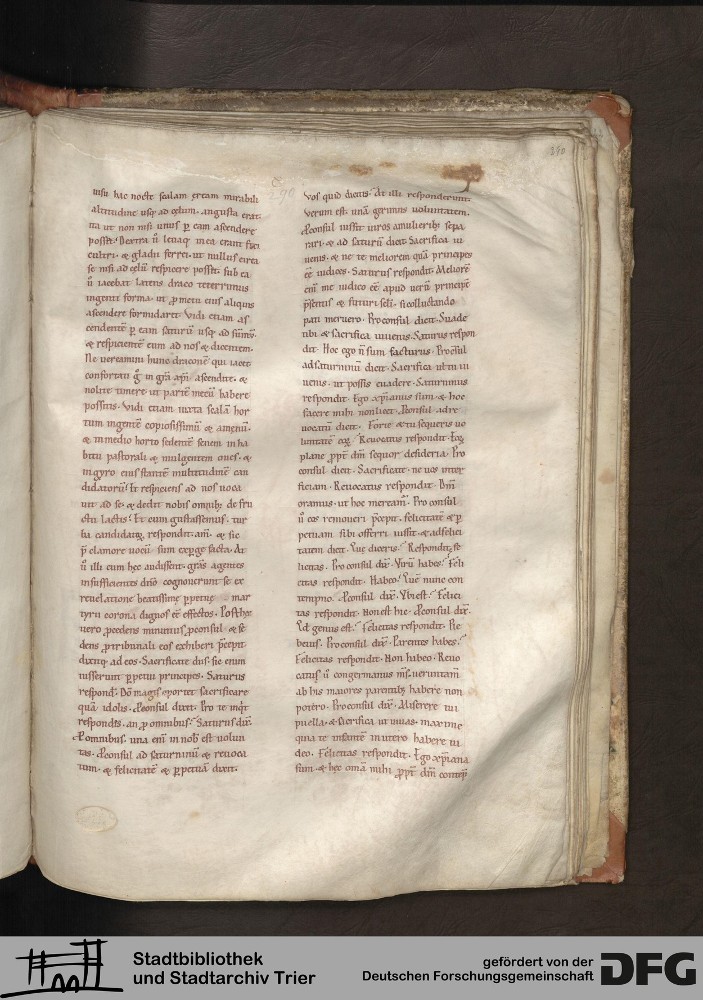 240
uisu hac nocte scalam ęream mirabili
altitudine usq; ad cęlum. angusta erat
ita ut non nisi unus p̱ eam ascendere
posset. Dextra ũ leuaq; inea erant fixi
cultri. & gladii ferrei. ut nullus circa
se nisi ad cęlũ respicere posset. sub ea
ũ iacebat latens draco teterrimus
ingenti forma. ut p̱ metu eius aliquis
ascendere formidaret. Vidi etiam as
cendentẽ p̱ eam saturũ usq; ad sũmũ.
& respicientẽ eum ad nos & dicentem.
Ne uereamini hunc draconẽ qui iacet.
confortati g̊ in grã xp̃i ascendite. &
nolite timere ut partẽ mecũ habere
possitis. Vidi etiam iuxta scalã hor
tum ingentẽ copiosissimũ & amenũ.
& in medio horto sedentẽ senem in ha
bitu pastorali & mulgentem oues. &
in gyro eius stantẽ multitudinẽ can
didatorũ. Et respiciens ad nos uoca
uit ad se. & dedit nobis omnib; de fru
ctu lactis. Et cum gustassemus. tur
ba candidatoꝝ respondit. am̃. & sic
p̱ clamore uocũ sum exp̱ge facta. At
ũ illi cum hęc audissent. gras̃ agentes
insufficientes dñо cognouerunt se ex
reuelatione beatissimę p̱petuę mar
tyrii corona dignos eẽ effectos. Post hęc
uero p̱cedens minutius p̱consul. & se
dens p̱tribunali eos exhiberi p̱cepit
dixitq; ad eos. Sacrificate diis. sic enim
iusserunt p̱petui principes. Saturus
respond̃. Dõ magis oportet sacrificare
quã idolis. Proconsul dicit. Pro te inq̃t
respondes. an p̱ omnibus. Saturus dix̃.
Pro omnibus. una enĩ in nob̃ est uolun
tas. Proconsul ad saturninũ & reuoca
tum. & felicitatẽ & p̱petuã dixit.
Vos quid dicitis. At illi responderunt.
Verum est. unã gerimus uoluntatem.
Proconsul iussit uiros a mulierib; sepa
rari. & ad saturũ dicit. Sacrifica iu
uenis. & ne te meliorem quã principes
eẽ iudices. Saturus respondit. Meliorẽ
enĩ me iudico eẽ apud uerũ principẽ
p̱sentis & futuri scl̃i. si colluctando
pati meruero. Proconsul dicit. Suade
tibi & sacrifica iuuenis. Saturus respon
dit. Hoc ego ñ sum facturus. Procõsul
ad saturninũ dicit. Sacrifica uel tu iu
uenis. ut possis euadere. Saturninus
respondit. Ego xp̃ianus sum. & hoc
facere mihi non licet. Proconsul ad re
uocatũ dicit. Forte & tu sequeris uo
luntatẽ eoꝝ. Reuocatus respondit. Eoꝝ
plane p̱pt̃ dm̃ sequor desideria. Pro
consul dicit. Sacrificate. ne uos inter
ficiam. Reuocatus respondit. Dm̃
oramus. ut hoc mereamũr. Pro consul
ũ eos remoueri p̱cepit. felicitatẽ & p̱
petuam sibi offerri iussit. & ad felici
tatem dicit. Que diceris. Respondit. fe
licitas. Pro consul dix̃. Virũ habes. Feli
citas respondit. Habeo. Quẽ nunc con
tempno. Proconsul dix̃. Vbi est. Felici
tas respondit. Non est hic. Proconsul dix̃.
Quod genus est. Felicitas respondit. Ple
beius. Proconsul dix̃. Parentes habes.
Felicitas respondit. Non habeo. Reuo
catus ũ congermanus ms̃. ueruntam̃
ab his maiores parentib; habere non
potero. Proconsul dix̃. Miserere tui
puella. & sacrifica ut uiuas. maxime
quia te infantẽ in utero habere ui
deo. Felicitas respondit. Ego xp̃iana
sum. & hęc omĩa mihi p̱pt̃ dm̃ contẽp
Stadtbibliothek
und Stadtarchiv Trier
gefördert von der
Deutschen Forschungsgemeinschaft
DFG